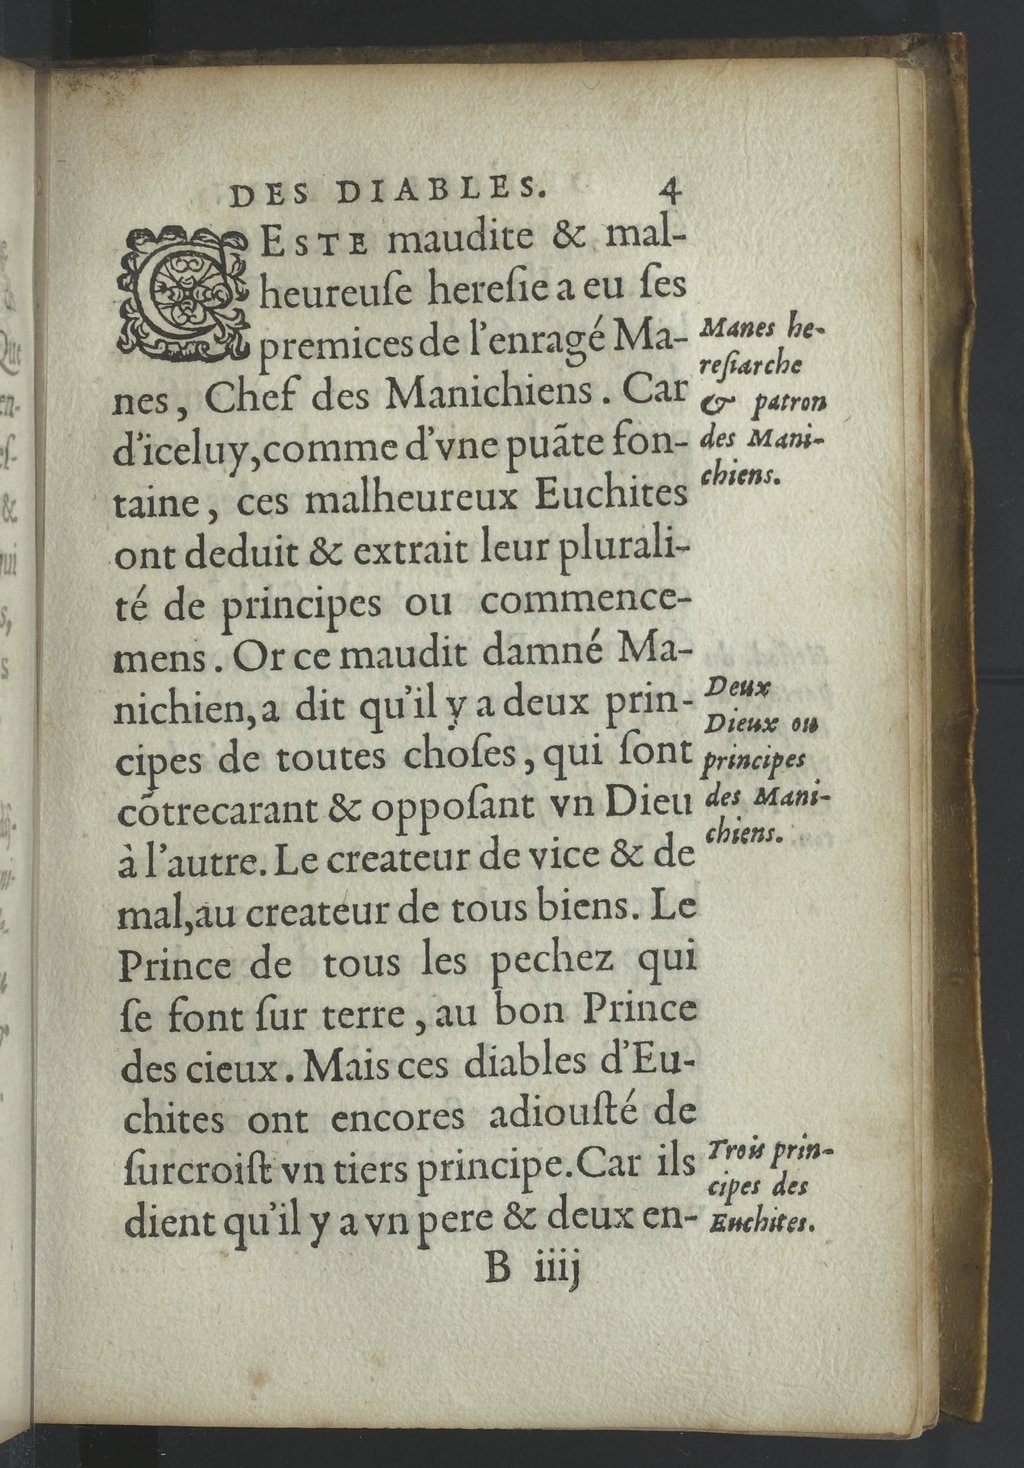 DES DIABLES. 4
CESTE maudite & mal-
heureuſe hereſie a eu ſes
premices de l'enragé Ma-
nes, Chef des Manichiens. Car
d'iceluy, comme d'vne puãte fon-
taine, ces malheureux Euchites
ont deduit & extrait leur plurali-
té de principes ou commence-
mens. Or ce maudit damné Ma-
nichien, a dit qu'il y a deux prin-
cipes de toutes choſes, qui ſont
cõtrecarant & oppoſant vn Dieu
à l'autre. Le createur de vice & de
mal, au createur de tous biens. Le
Prince de tous les pechez qui
ſe font ſur terre, au bon Prince
des cieux. Mais ces diables d'Eu-
chites ont encores adiouſté de
ſurcroiſt vn tiers principe. Car ils
dient qu'il y a vn pere & deux en-
B iiij
Manes he-
reſiarche
& patron
des Mani-
chiens.
Deux
Dieux ou
principes
des Mani-
chiens.
Trois prin-
cipes des
Euchites.